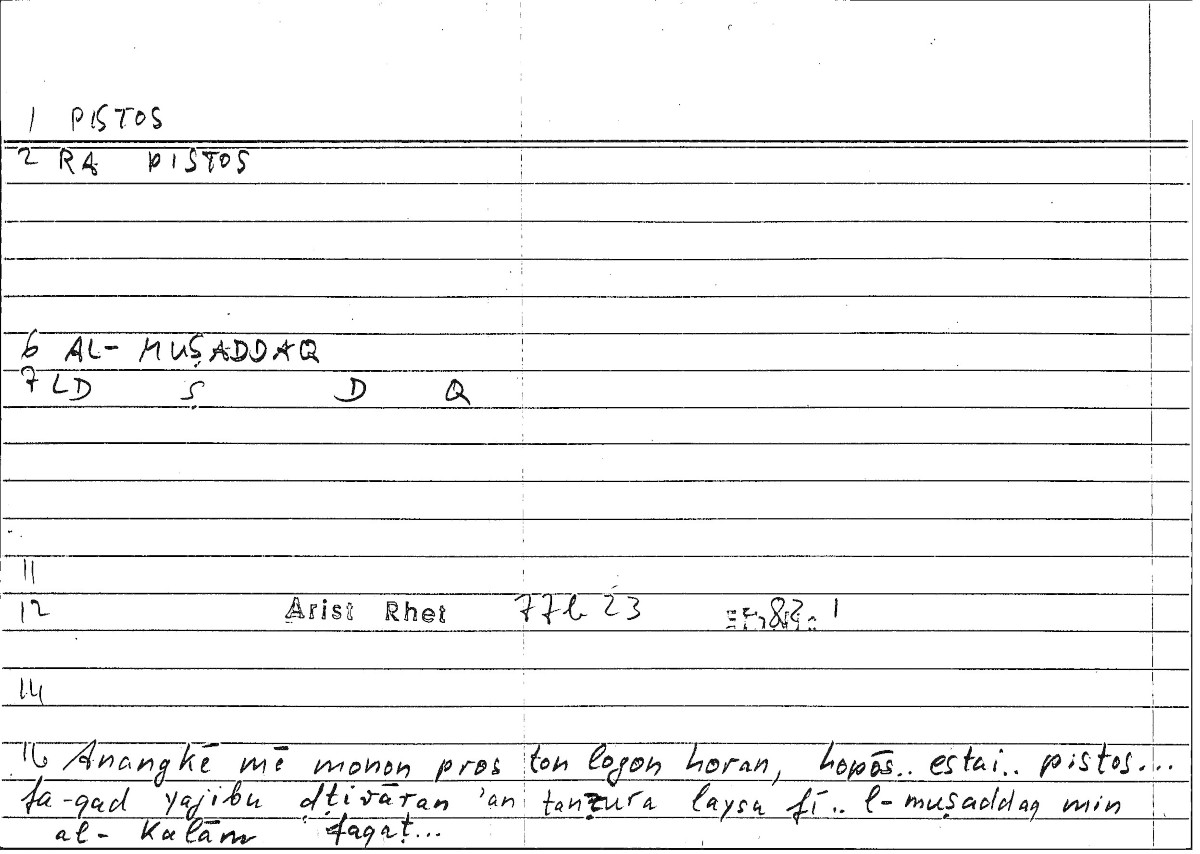 1 PISTOS
2 RA PISTOS
6 AL- MUṢADDAQ
7 LD Ṣ D Q
11
12 Arist Rhet 77b 23 82. 1
14
16 Anangkē mē monon pros ton logon horan, hopōs.. estai.. pistos...
fa-qad yajibu ḍṭirāran 'an tanẓura laysa fī.. l-muṣaddaq min
al- Kalām faqaṭ...